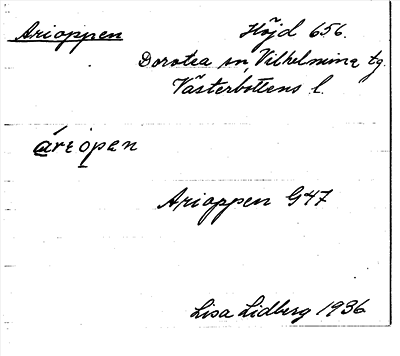 Arioppen Höjd 656.
Dorotea sn, Vilhelmina tg.
Västerbottens l.
áriopen
Arioppen G47
Lisa Lidberg 1936